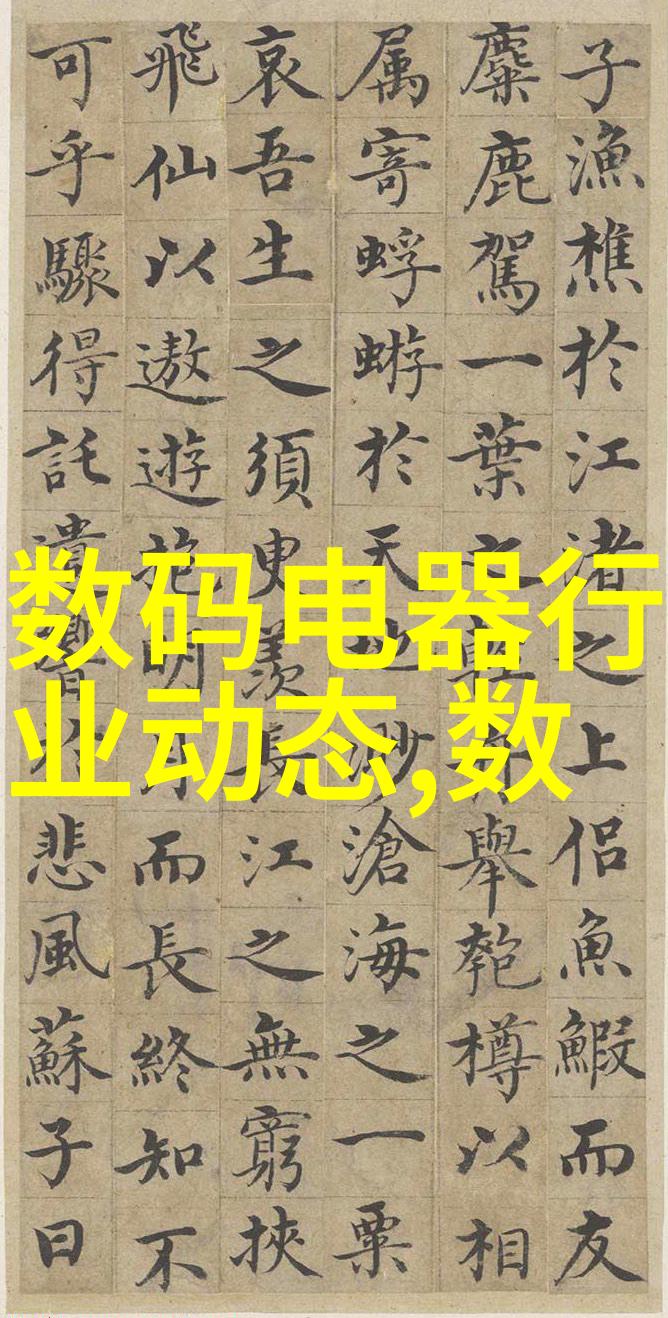 子漁樵於江渚之上侶魚鰕而友
麋鹿駕一葉之輕舟舉匏樽以相
属寄蜉蝣於天地渺滄海之一粟
哀吾生之須臾羨長江之無窮挾
飛仙以遨遊抱明月而長終知不
可乎驟得託遺響於悲風蘇子曰
数码电器行
业动态,数